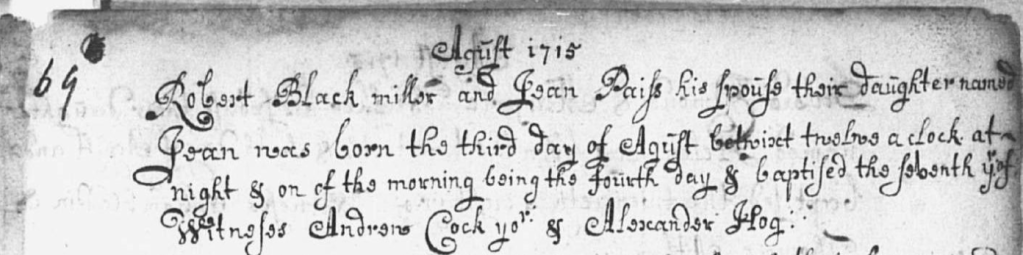 69
Agust 1715
Robert Black miller and Jean Paiss his spouse their daughter named
Jean was born the third day of Agust betwixt twelve a clock at
night & on of the morning being the fourth day & baptised the seventh yrof
Witneses Andrew Cock yor & Alexander Hog: